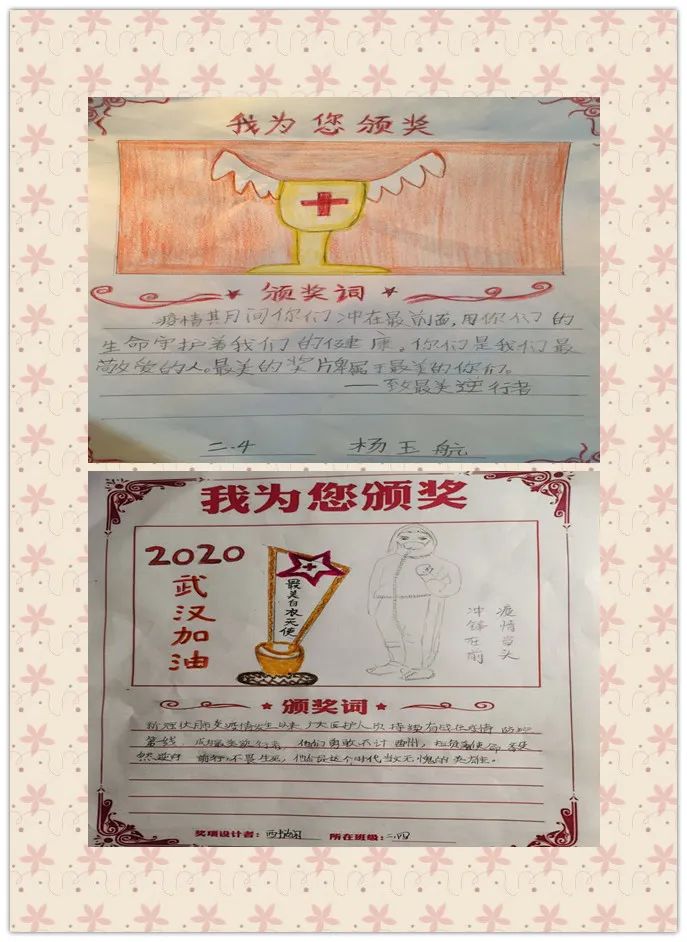 我为您颁奖
颁奖词
疫情其月间你们冲在最前面,用你们的
生命守护着我们的健康。你们是我们最
敬爱的人。最美的奖牌属于最美的你们。
——致最美逆行者
二.4 杨玉航
我为您颁奖
2020
武汉加油
最美白衣天使
疫情当头
冲锋在前
颁奖词
新冠状肺炎疫情发生以来 广大医护人员 持续奋战在疫情 防控
第一线 成为最美逆行者, 他们勇敢不计
然逆向 前行,不畏生死, 他们是这个时代当之无愧的英雄。
奖项设计者: 所在班级:二.四